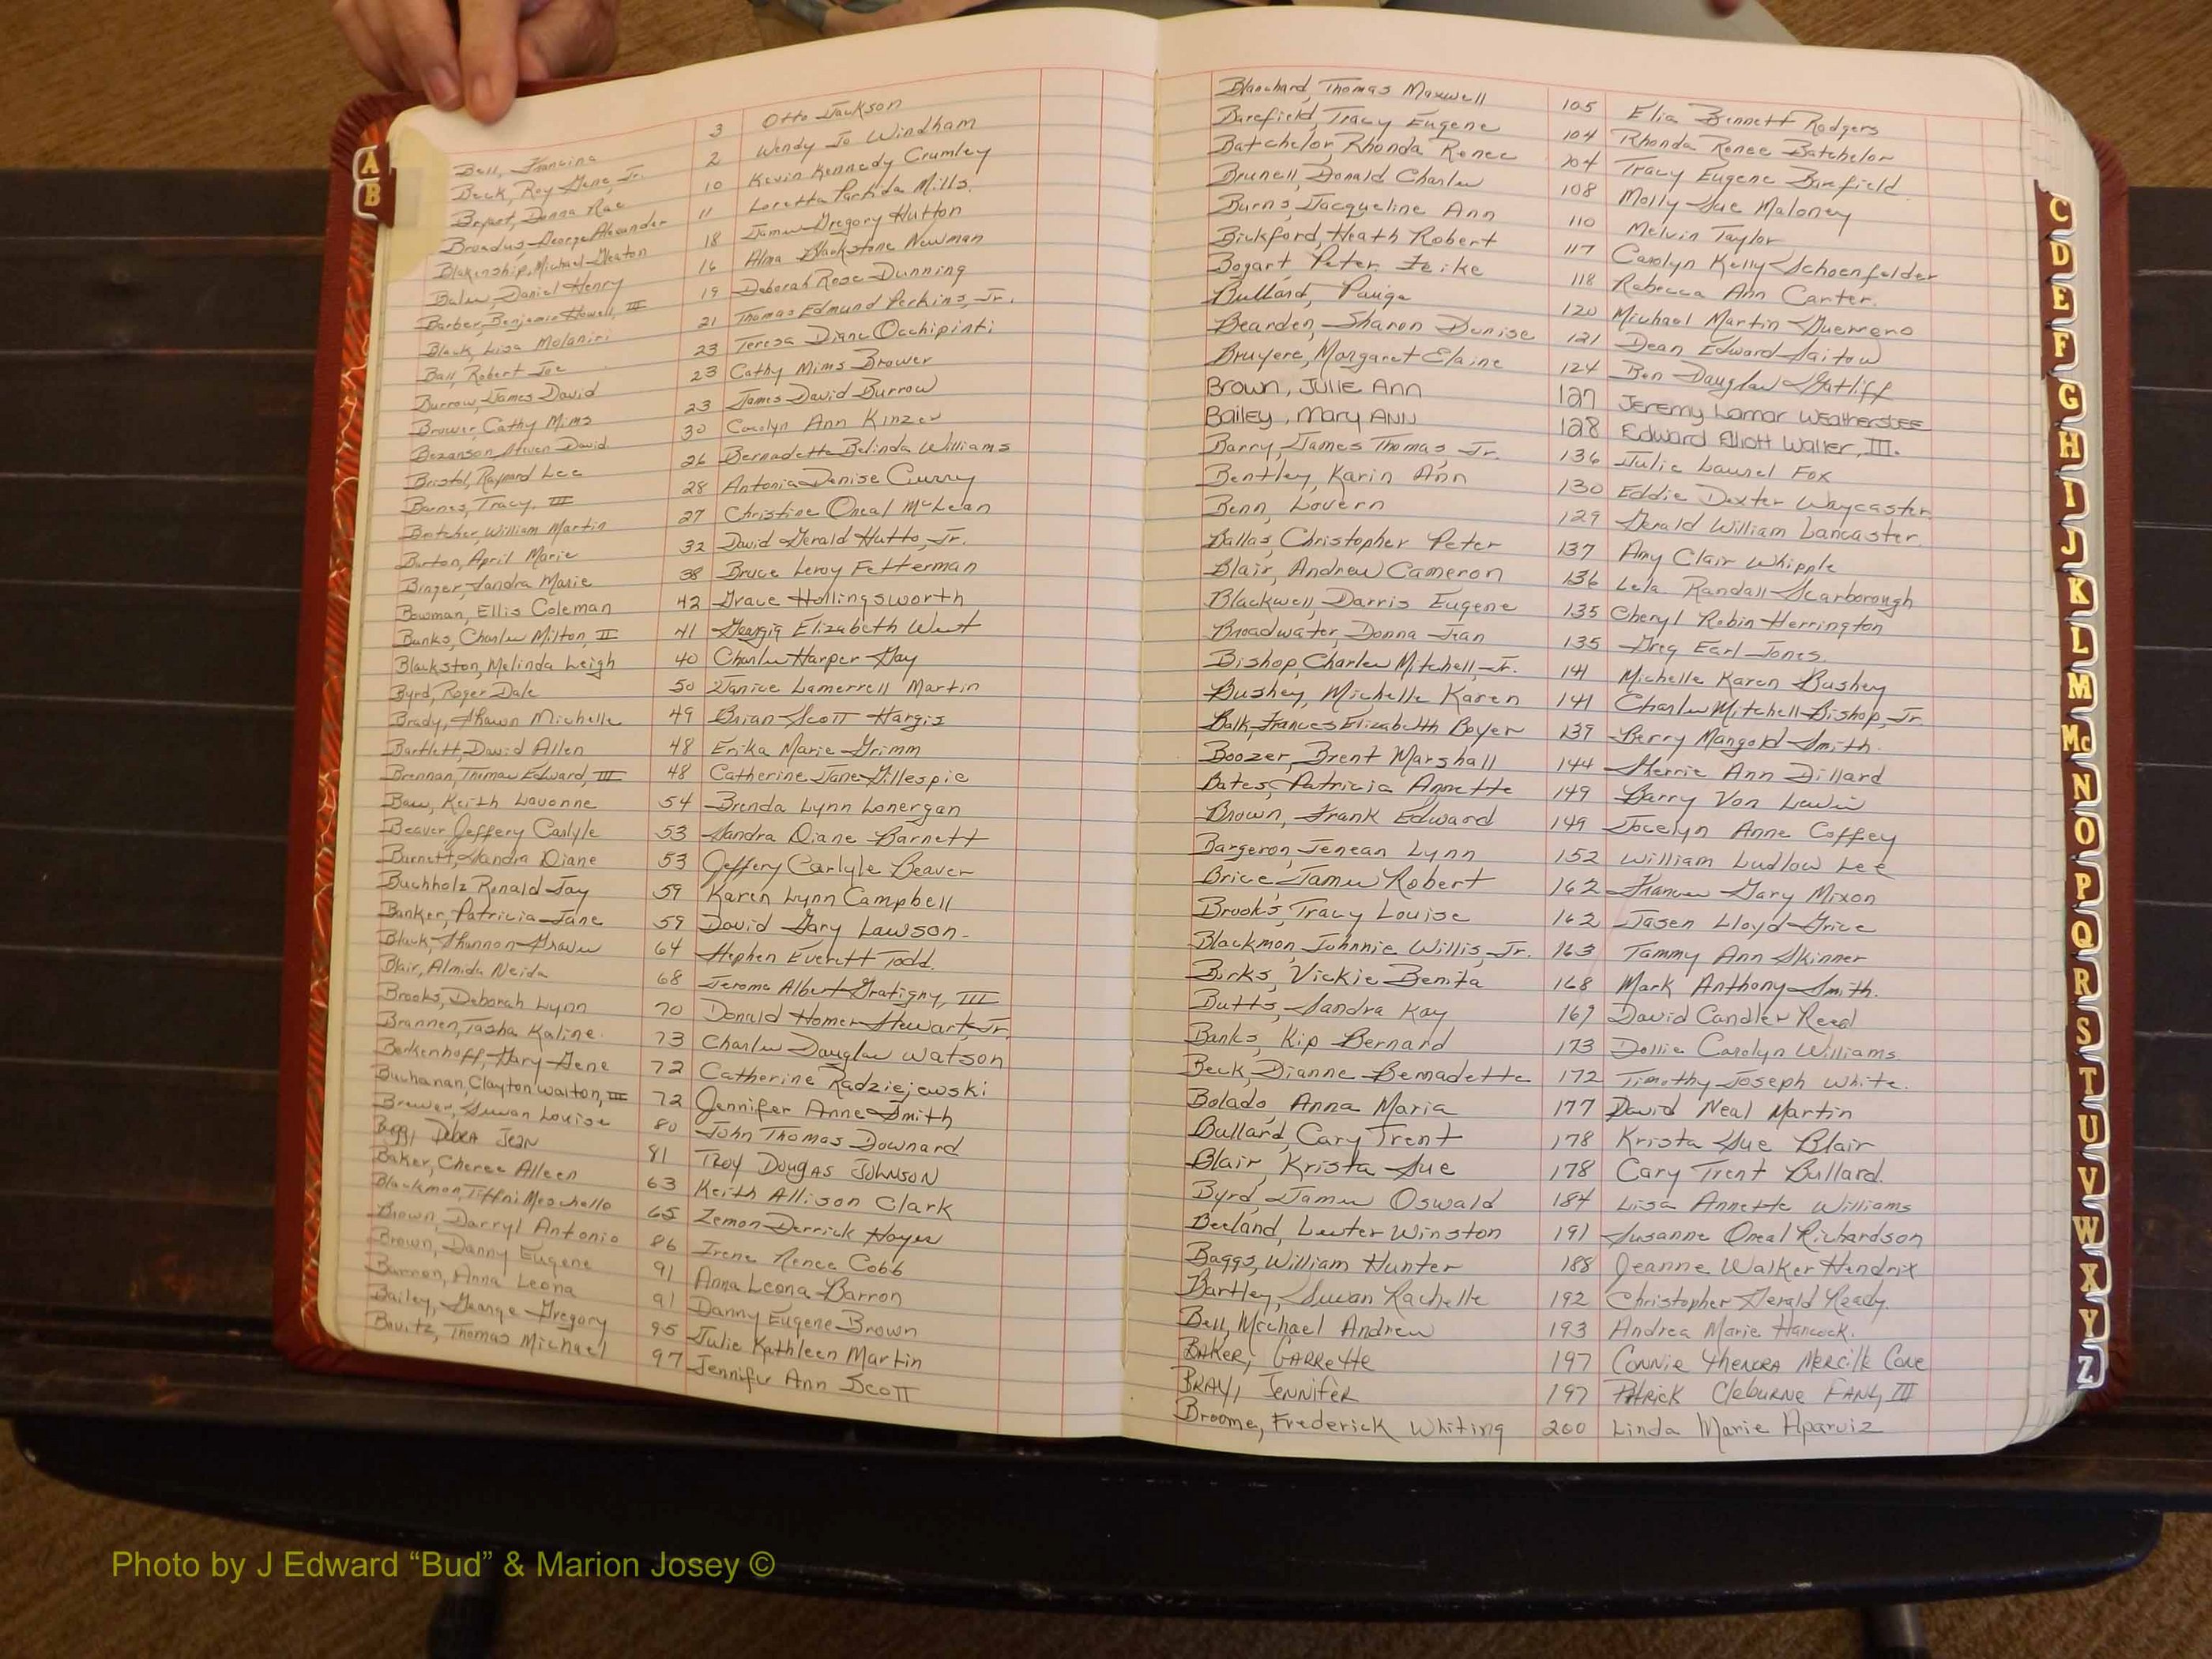 A
B
Bell, Francina 3 Otto Jackson
Beck, Roy Gene, Jr. 2 Wendy Jo Windham
Donna Rae 10 Kevin Kennedy Crumley
Broadus, George Alexander 11 Loretta Mills.
Blakenship, Michael Heaton 18 James Gregory Hutton
Daniel Henry 16 Alma Blackstone Newman
Barber, Benjamin Howell, III 19 Deborah Rose Dunning
Black, Lisa 21 Thomas Edmund Perkins, Jr.
Ball, Robert Joe 23 Teresa Diane Occhipinti
Burrow, James David 23 Cathy Mims Brower
Brower, Cathy Mims 23 James David Burrow
Bezanson, Steven David 30 Carolyn Ann Kinzer
Bristol, Raynard Lee 26 Bernadette Belinda Williams
Barnes, Tracy, III 28 Antonia Denise Curry
Botcher, William Martin 27 Christine Oneal McLean
Burton, April Marie 32 David Gerald Hutto, Jr.
Binger, Sandra Marie 38 Bruce Leroy Fetterman
Bowman, Ellis Coleman 42 Grace Hollingsworth
Banks, Charles Milton, II 41 Georgia Elizabeth West
Blackston, Melinda Leigh 40 Charles Harper Gay
Byrd, Roger Dale 50 Janice Lamerrell Martin
Brady, Shawn Michelle 49 Brian Scott Hargis
Bartlett, David Allen 48 Erika Marie Grimm
Brennan, Thomas Edward, III 48 Catherine Jane Gillespie
Bass, Keith Lavonne 54 Brenda Lynn Lonergan
Beaver Jeffery Carlyle 53 Sandra Diane Barnett
Barnett, Sandra Diane 53 Jeffery Carlyle Beaver
Buchholz Ronald Jay 59 Karen Lynn Campbell
Banker, Patricia Jane 59 David Gary Lawson
Black, Shannon Graves 64 Stephen Everett Todd.
Blair, Almida Neida 68 Jerome Albert Gratigny, III
Brooks, Deborah Lynn 70 Donald Homer Stewart, Jr.
Brannen, Tasha Kaline. 73 Charles Douglas Watson
Berkenhoff, Gary Gene 72 Catherine Radziejewski
Buchanan, Clayton Walton, III 72 Jennifer Anne Smith
Brewer, Susan Louise 80 John Thomas Downard
Debra Jean 81 Troy Dougas Johnson
Baker, Cheree Alleen 63 Keith Allison Clark
Blackmon, Tiffni Meochelle 65 Zemon Derrick Hayes
Brown, Darryl Antonio 86 Irene Renee Cobb
Brown, Danny Eugene 91 Anna Leona Barron
Barron, Anna Leona 91 Danny Eugene Brown
Bailey, George Gregory 95 Julie Kathleen Martin
Bovitz, Thomas Michael 97 Jennifer Ann Scott
Blanchard, Thomas Maxwell 105 Elia Bennett Rodgers
Barefield, Tracy Eugene 104 Rhonda Renee Batchelor
Batchelor, Rhonda Renee 104 Tracy Eugene Barefield
Brunell, Donald Charles 108 Molly Sue Maloney
Burns, Jacqueline Ann 110 Melvin Taylor
Bickford, Heath Robert 117 Carolyn Kelly Schoenfelder
Bogart, Peter Feike 118 Rebecca Ann Carter.
Bullard, Paige 120 Michael Martin Guerrero
Bearden, Sharon Denise 121 Dean Edward Saitow
Bruyere, Margaret Elaine 124 Ben Douglas Gatliff
Brown, Julie Ann 127 Jeremy Lamar Weatherstee
Bailey, Mary Ann 128 Edward Elliott Waller, III.
Barry, James Thomas, Jr. 136 Julie Laurel Fox
Bentley, Karin Ann 130 Eddie Dexter Waycaster
Benn, Lovern 129 Gerald William Lancaster.
Ballas, Christopher Peter 137 Amy Clair Whipple
Blair, Andrew Cameron 136 Lela Randall Scarborough
Blackwell, Darris Eugene 135 Cheryl Robin Herrington
Broadwater, Donna Jean 135 Greg Earl Jones.
Bishop, Charles Mitchell, Jr. 141 Michelle Karen Bushey
Bushey, Michelle Karen 141 Charles Mitchell Bishop, Jr.
Balk, Frances Elizabelth Boyer 139 Berry Mangold Smith.
Boozer, Brent Marshall 144 Sherrie Ann Dillard
Bates, Patricia Annette 149 Barry Von Lewis
Brown, Frank Edward 149 Jocelyn Anne Coffey
Bargeron, Jenean Lynn 152 William Ludlow Lee
Brice James Robert 162 Frances Gary Mixon
Brooks, Tracy Louise 162 Jasen Lloyd Grice
Blackmon, Johnnie Willis, Jr. 163 Tammy Ann Skinner
Birks, Vickie Benita 168 Mark Anthony Smith.
Butts, Sandra Kay 169 David Candler Reed
Banks, Kip Bernard 173 Dollie Carolyn Williams.
Beck, Dianne Bernadette 172 Timothy Joseph White.
Bolado, Anna Maria 177 David Neal Martin
Bullard, Cary Trent 178 Krista Sue Blair
Blair, Krista Sue 178 Cary Trent Bullard.
Byrd, James Oswald 184 Lisa Annette Williams
Beeland, Lester Winston 191 Susanne Oneal Richardson
Baggs, William Hunter 188 Jeanne Walker Hendrix
Bartley, Susan Rachelle 192 Christopher Gerald Ready.
Bell, Michael Andrew 193 Andrea Marie Hancock.
Baker, Garrette 197 Connie Mercille Cone
Bray, Jennifer 197 Patrick Cleburne III
Broome, Frederick Whiting 200 Linda Marie Aparviz
C
D
E
F
G
H
I
J
K
L
M
Mc
N
O
P
Q
R
S
T
U
V
W
X
Y
Z
Photo by J Edward “Bud” & Marion Josey ©